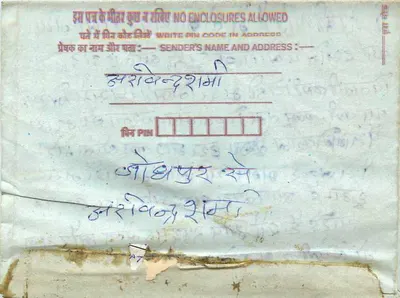 इस पत्र के भीतर कुछ न रखिए NO ENCLOSURES ALLOWED
पते में पिन कोड लिखें WRITE PIN CODE IN ADDRESS
प्रेषक का नाम और पता :— SENDER'S NAME AND ADDRESS :—
अरविन्द शर्मा
पिन PIN
जोधपुर से
अरविन्द शर्मा